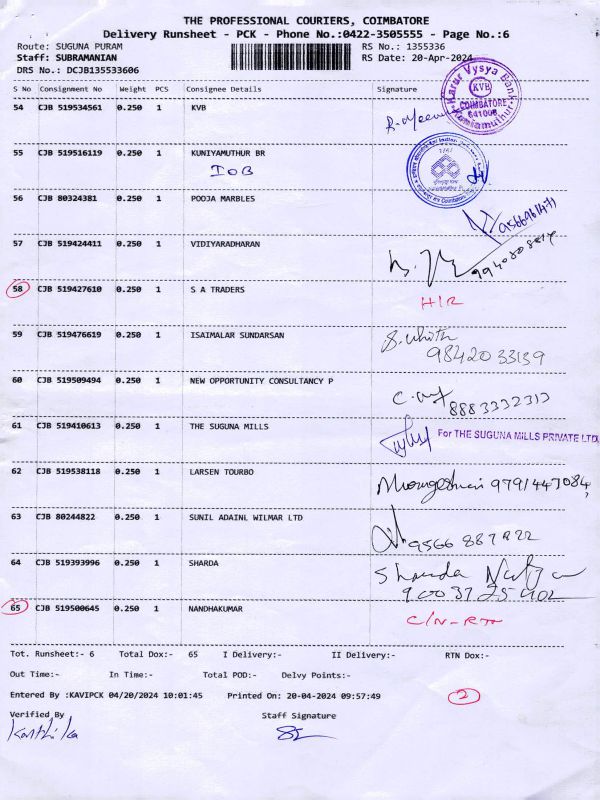 THE PROFESSIONAL COURIERS, COIMBATORE
Delivery Runsheet - PCK - Phone No.:0422-3505555 - Page No.:6
Route: SUGUNA PURAM RS No.: 1355336
Staff: SUBRAMANIAN RS Date: 20-Apr-2024
DRS No.: DCJB135533606
S No Consignment No Weight PCS Consignee Details Signature
54 CJB 519534561 0.250 1 KVB
Karur Vysya Bank KVB COIMBATORE 641008
55 CJB 519516119 0.250 1 KUNIYAMUTHUR BR
IOB
56 CJB 80324381 0.250 1 POOJA MARBLES
57 CJB 519424411 0.250 1 VIDIYARADHARAN
58 CJB 519427610 0.250 1 S A TRADERS
H/R
59 CJB 519476619 0.250 1 ISAIMALAR SUNDARSAN
9842033139
60 CJB 519509494 0.250 1 NEW OPPORTUNITY CONSULTANCY P
8883332313
61 CJB 519410613 0.250 1 THE SUGUNA MILLS
For THE SUGUNA MILLS PRIVATE LTD.
62 CJB 519538118 0.250 1 LARSEN TOURBO
9791447084
63 CJB 80244822 0.250 1 SUNIL ADAINL WILMAR LTD
64 CJB 519393996 0.250 1 SHARDA
Sharda
65 CJB 519500645 0.250 1 NANDHAKUMAR
Tot. Runsheet:- 6 Total Dox:- 65 I Delivery:- II Delivery:- RTN Dox:-
Out Time:- In Time:- Total POD:- Delvy Points:-
Entered By :KAVIPCK 04/20/2024 10:01:45 Printed On: 20-04-2024 09:57:49 2
Verified By Staff Signature
Karthika